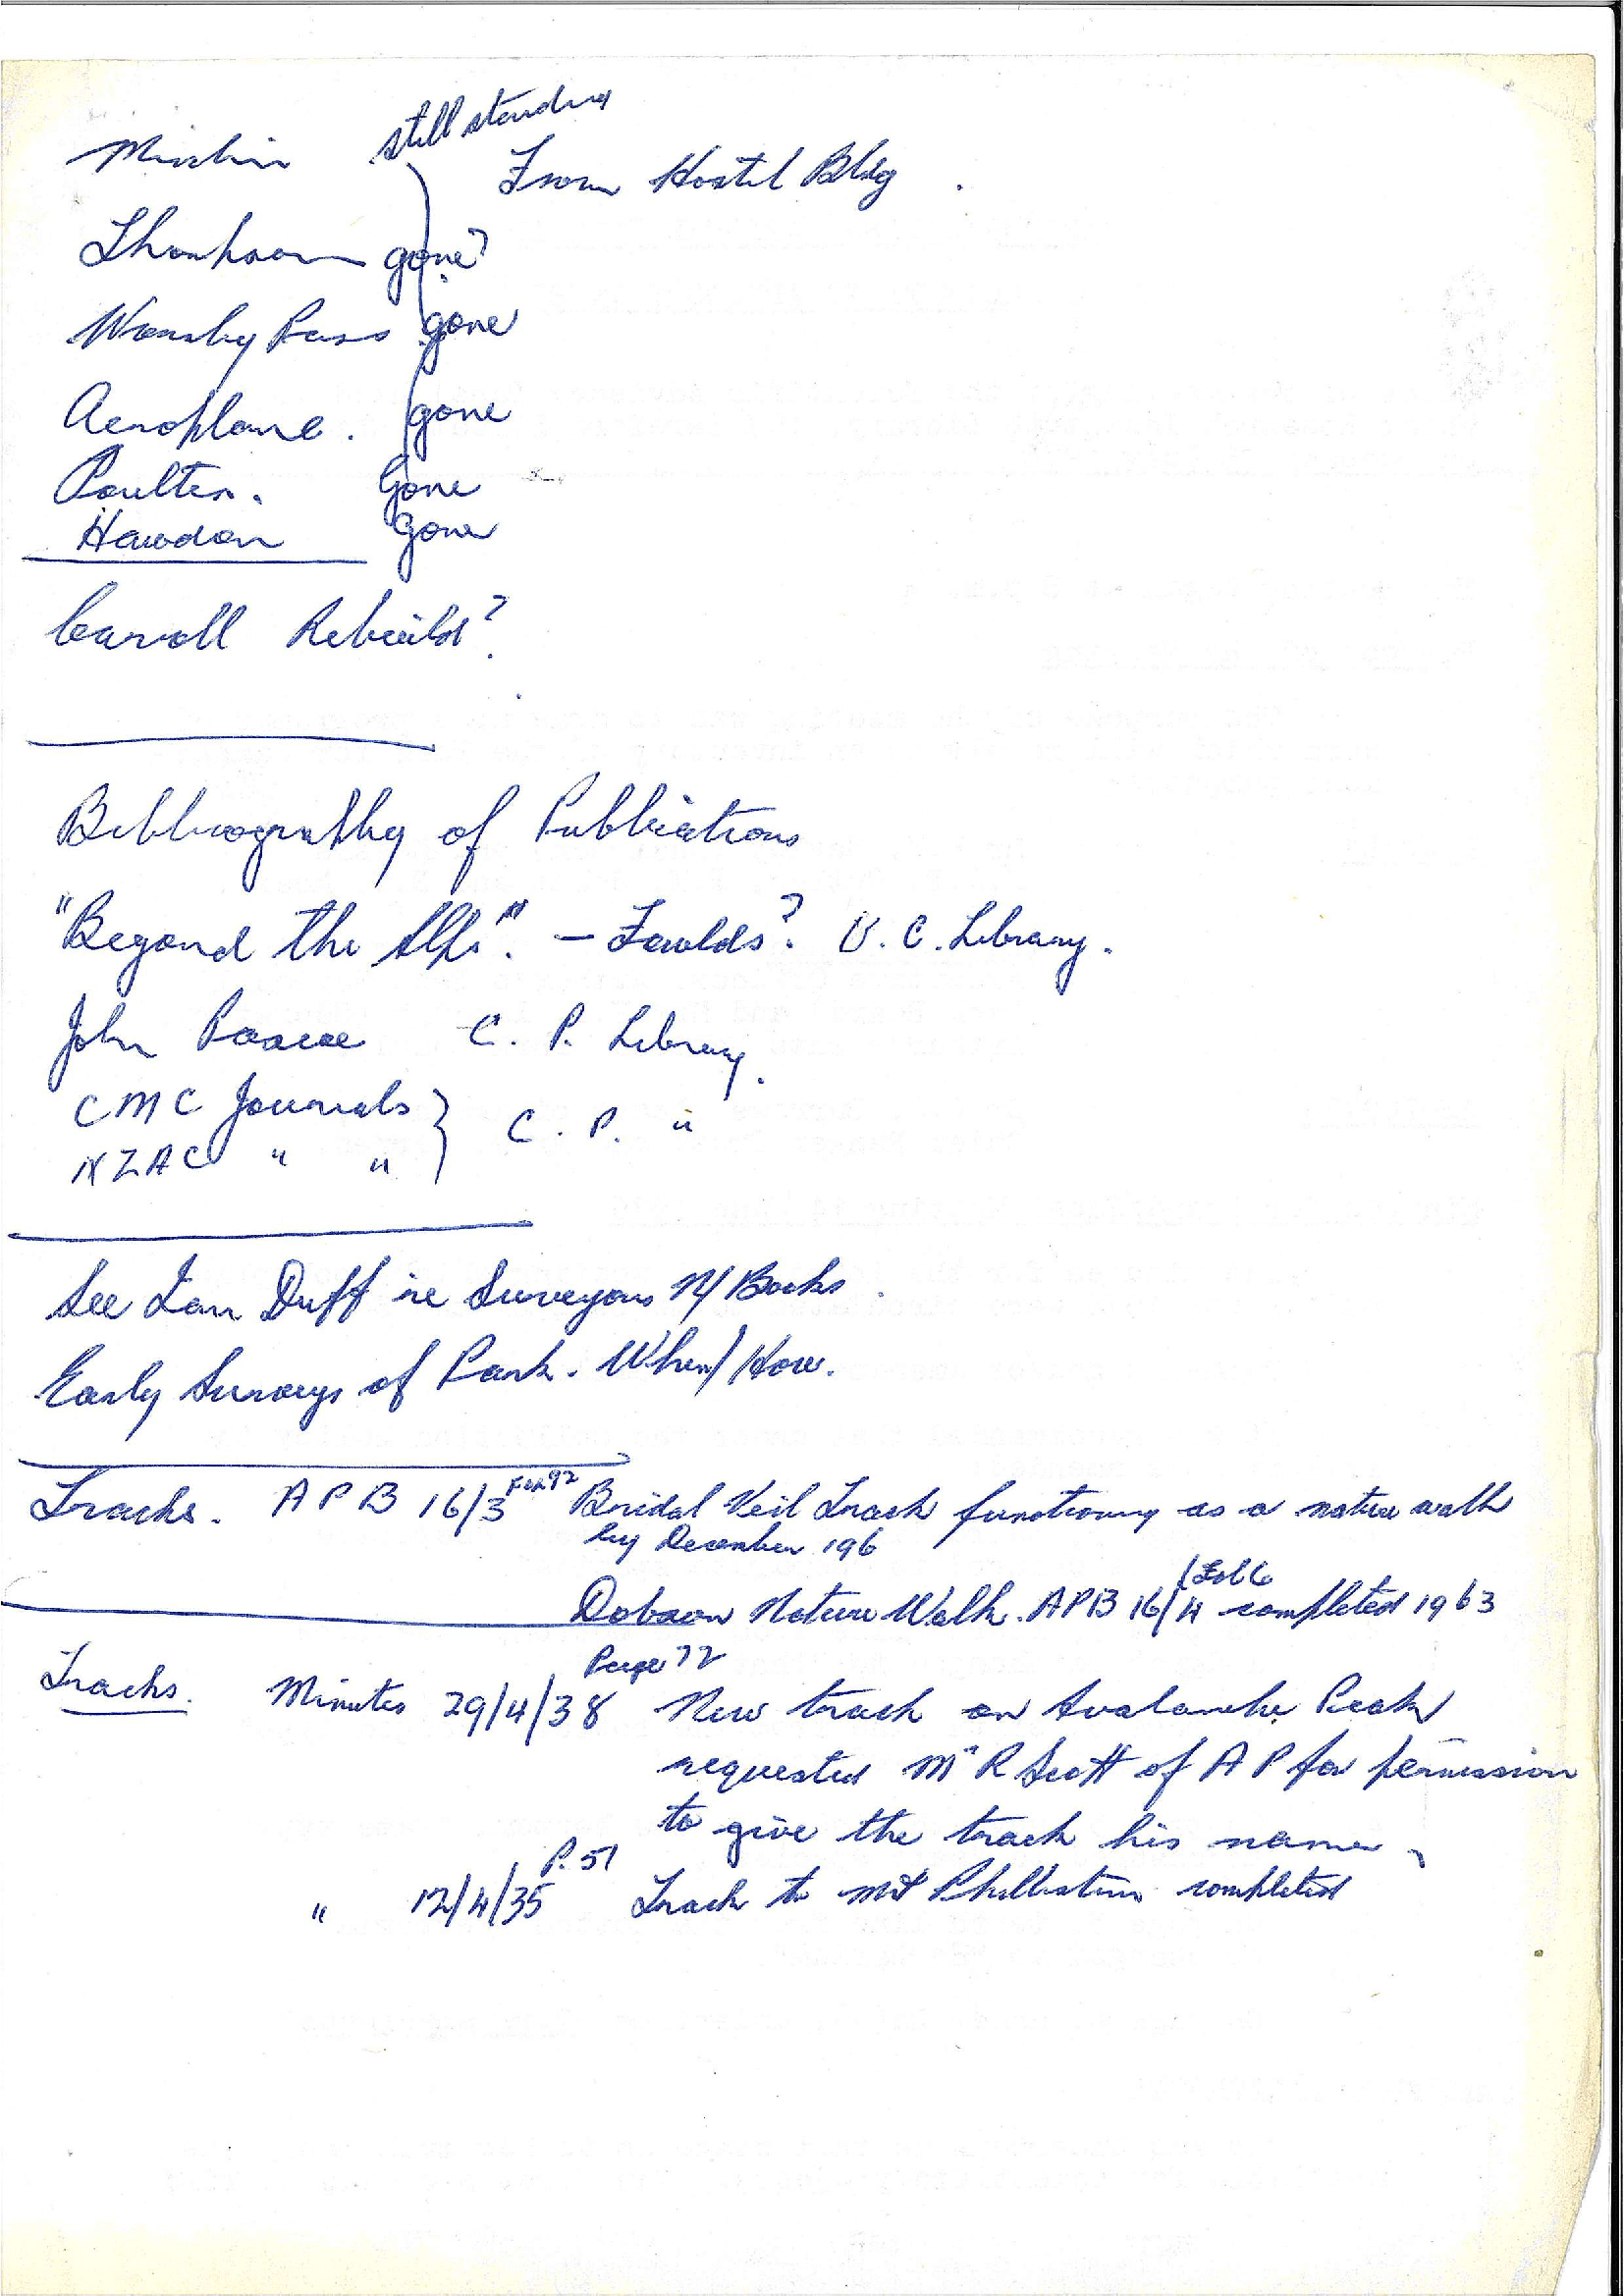 Minchin still standing
From Hostel Bldg .
gone?
Worsley Pass gone
Aeroplane. gone
Poulter. Gone
Hawdon Gone
Carroll Rebuild?
Bibliography of Publications
"Beyond the Alps". - Foulds? U.C. Library.
John Pascoe C. P. Library.
CMC Journals } C. P. "
NZAC " "
See Ian Duff re Surveyors N/ Books.
Early Surveys of Park. When/How.
Tracks. A P B 16/3 Fol 92 Bridal Veil Track functioning as a nature walk
by December 196
Dobson Nature Walk. APB 16/4 (Fol 6 completed 1963
Page 72
Tracks. Minutes 29/4/38 New track on Avalanche Peak
requested Mr R Scott of A P for permission
to give the track his name.
" 12/4/35 P. 51 Track to Mt Philistine completed